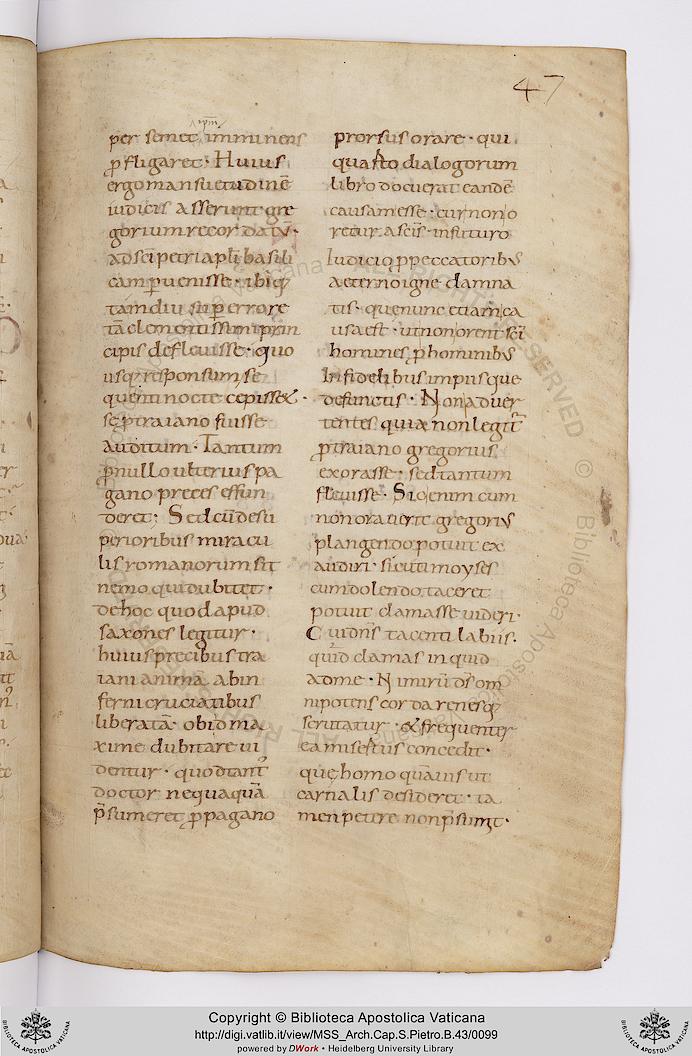 47
ipm̄
per semet imminens
ꝓfligaret· Huius
ergo mansuetudinē
iudicis asserunt gre
gorium recordatū·
ad sc̄i petri apl̄i basili
cam ꝑuenisse· ibiq;
tamdiu suꝑ errore
tā clementissimi prin
cipis deflevisse· quo
usq; responsum se
quenti nocte cepisset·
se ꝓ traiano fuisse
auditum· Tantum
ꝓ nullo ulterius pa
gano preces effun
deret· Sed cū de su
perioribus miracu
lis romanorum sit
nemo qui dubitet·
de hoc quod apud
saxones legitur·
huius precibus tra
iani animā ab in
ferni cruciatibus
liberatā· ob id ma
xime dubitare ui
dentur· quod tant᾿
doctor nequaquā
p̄sumeret ꝓ pagano
prorsus orare· qui
quarto dialogorum
libro docuerat eandē
causam esse· cur non o
retur a sc̄is· in futuro
Iudicio ꝓ peccatorib᾿
aeterno igne damna
tis· que nunc etiam ca
usa est· ut non orent sc̄i
homines ꝓ hominib᾿
Infidelibus impiisque
defunctis· Non aduer
tentes quia non legit᾿
ꝓ traiano gregorius
exorasse· sed tantum
flevisse· Sic enim cum
non oraverit gregori᾿
plangendo potuit ex
audiri· sicuti moyses
cum dolendo taceret
potuit clamasse uideri·
Cui dn̄s tacenti labiis·
quid clamas inquid
ad me· Nimirū ds̄ om
nipotens corda renesq;
scrutatur· & frequenter
ea misertus concedit·
quę homo quāuis ut
carnalis desideret· ta
men petere non p̄sumit·
Copyright © Biblioteca Apostolica Vaticana
http://digi.vatlib.it/view/MSS_Arch.Cap.S.Pietro.B.43/0099
powered by DWork • Heidelberg University Library